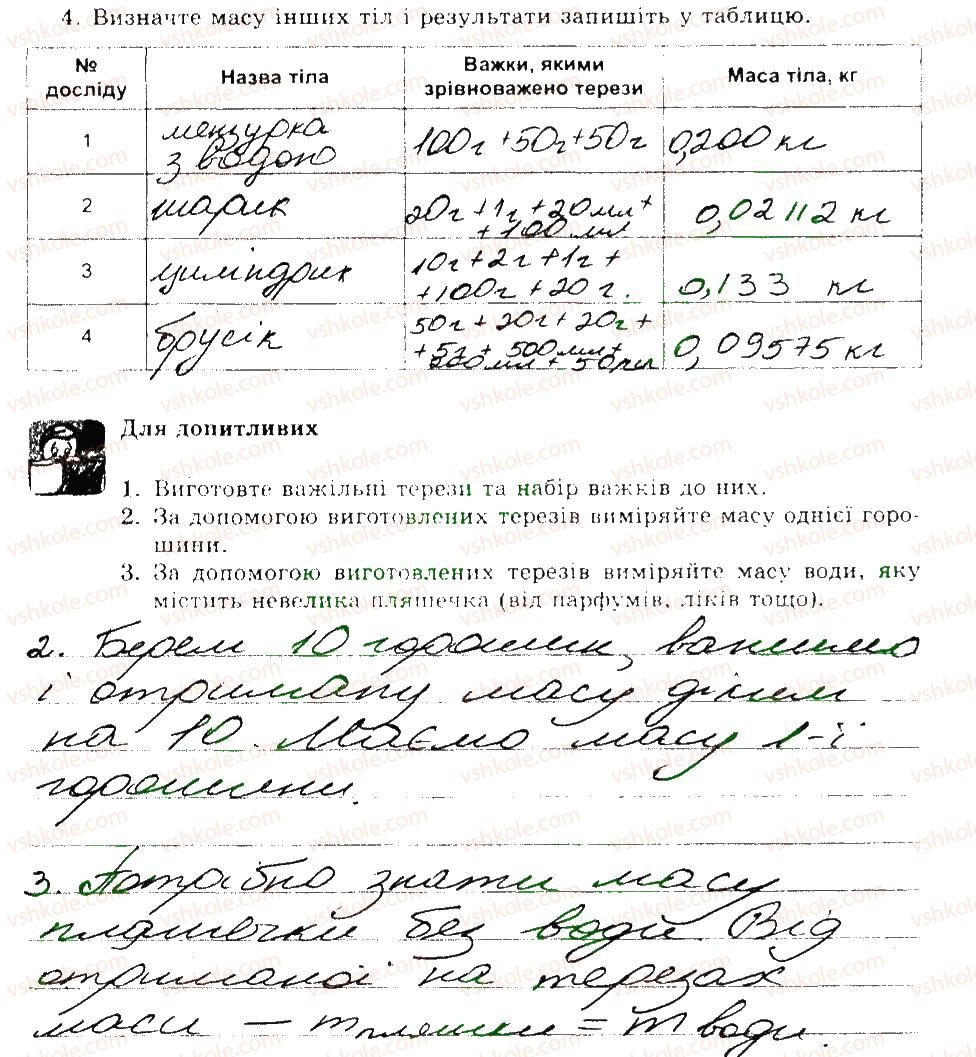 4. Визначте масу інших тіл і результати запишіть у таблицю.
№ досліду
Назва тіла
Важки, якими зрівноважено терези
Маса тіла, кг
1
мензурка
з водою
100г +50г+50г
0,200 кг
2
шарик
20г +1г +20мл+
+100 мл
0,02112 кг
3
циліндрик
10г+2г+1г+
+100г+20г.
0,133 кг
4
брусік
50г+20г+20г+
+5г+ 500мл+
200мл+50мл
0,09575кг
Для допитливих
1. Виготовте важільні терези та набір важків до них.
2. За допомогою виготовлених терезів виміряйте масу однієї горо-
шини.
3. За допомогою виготовлених терезів виміряйте масу води, яку
містить невелика пляшечка (від парфумів, ліків тощо).
2. Берем 10 горошин, важимо
і отриману масу ділим
на 10. Маємо масу 1-ї
горошини.
3. Потрібно знати масу
пляшечки без води. Від
отриманої на терезах
маси – m пляшки = m води.
vshkole.com